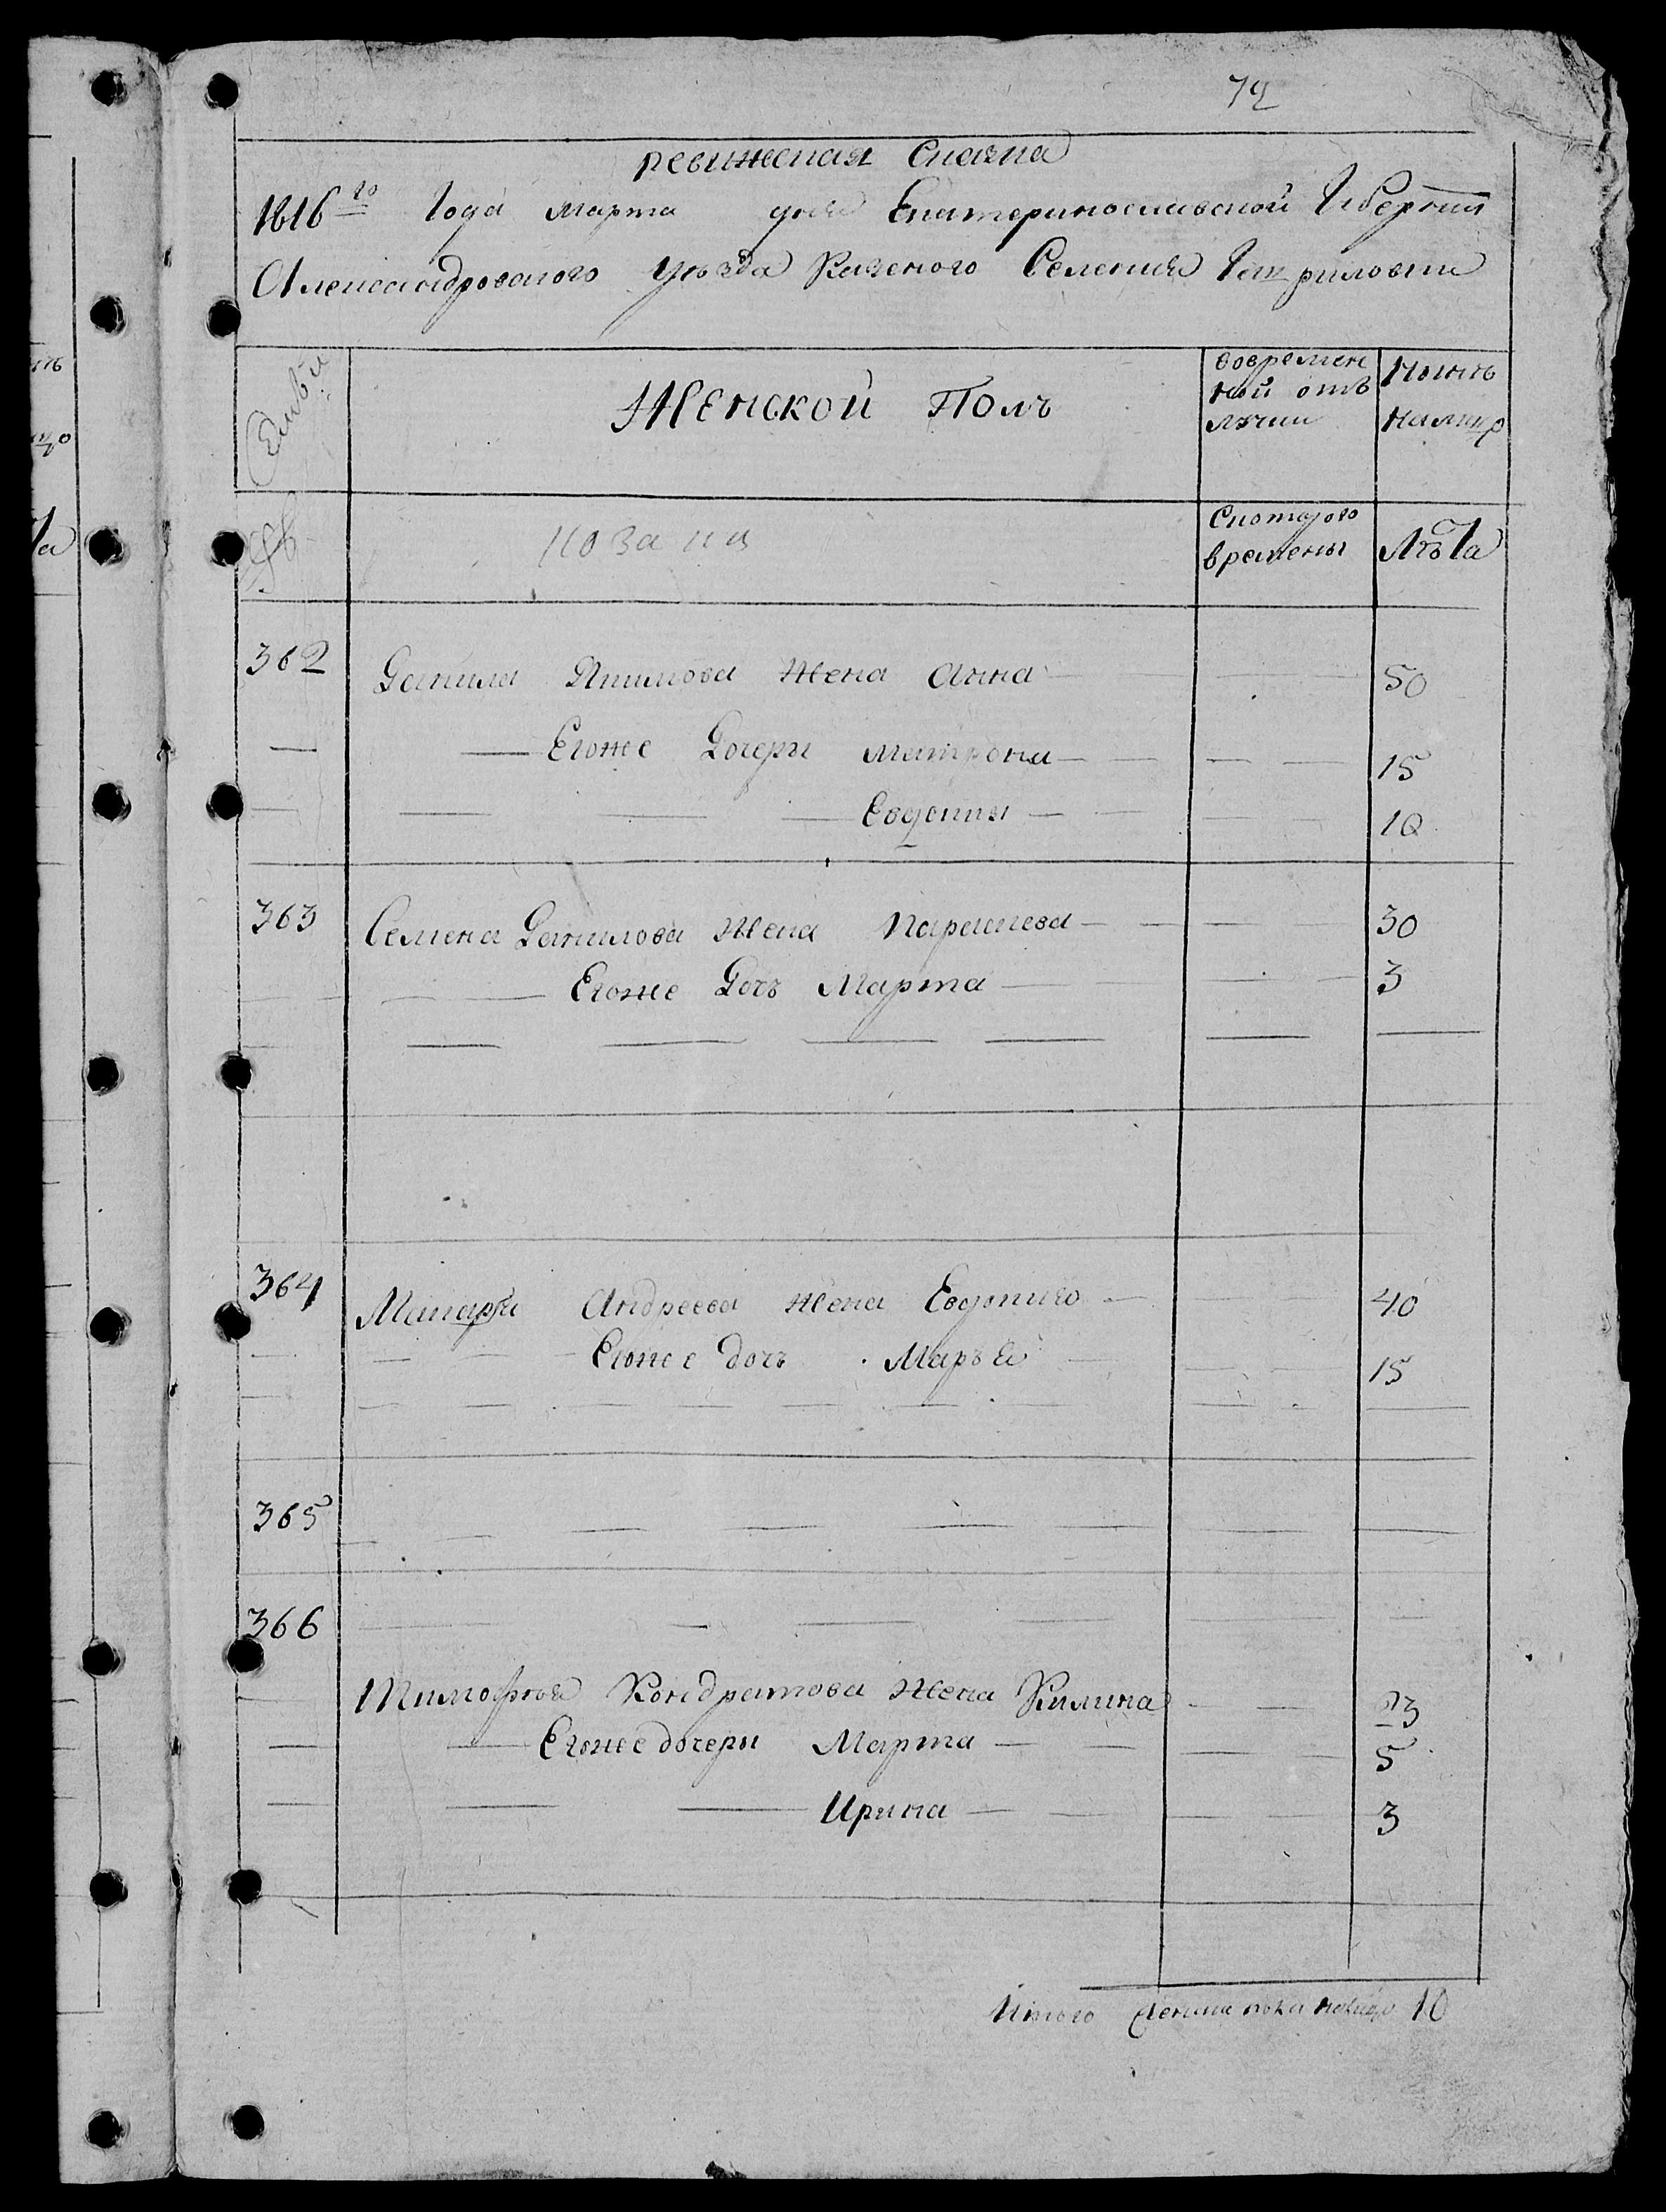 72
ревижская Сказка
1816 го Года марта дня Екатеринославской Губернии
Александровского уезда Казеного Селения
Женской Полъ
вовремен
ной отъ
лучки
Ноннъ
налицо
козака
Скоторого
времены
Лѣта
362 Данила Якимова Жена Анна 50
Егоже Дочери Матрона 15
Евдокия 10
363 Семена Данилова Жена Параскева 30
Егоже Дочъ Марта 3
364 Макара Андреева жена Евдокия 40
Егоже дочъ Марья 15
365
366
Тимофея Кондратова Жена Килина 23
Егоже дочери Марта 5
Ирина 3
Итого женска пола налицо 10